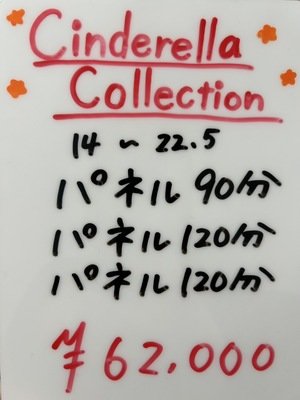 Cinderella
Collection
14〜22.5
パネル 90分
パネル 120分
パネル 120分
¥62.000